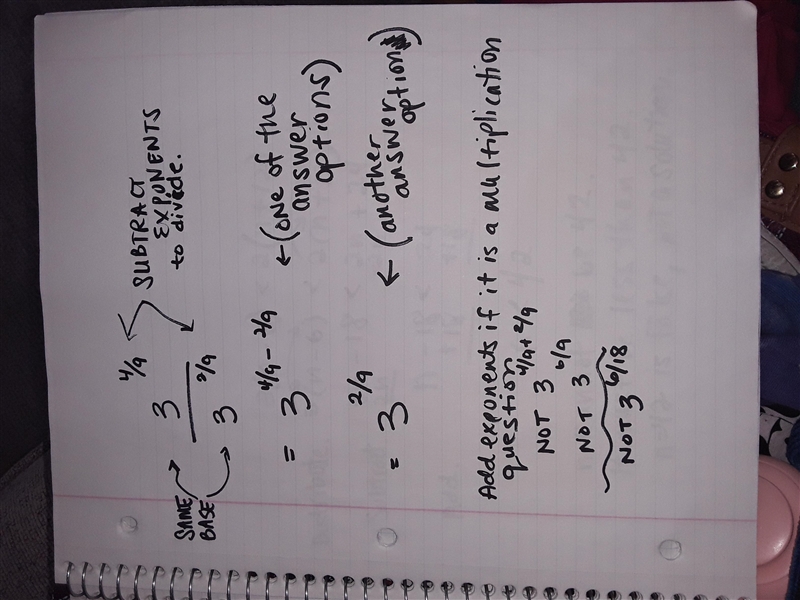 SAME
BASE
3^4/9
3^2/9
SUBTRACT
EXPONENTS
to divide.
= 3^4/9 - 2/9 ← (one of the
answer
options)
= 3^2/9 ← (another
answer
option)
Add exponents if it is a multiplication
question
NOT 3^4/9+2/9
NOT 3^6/9
NOT 3^6/18